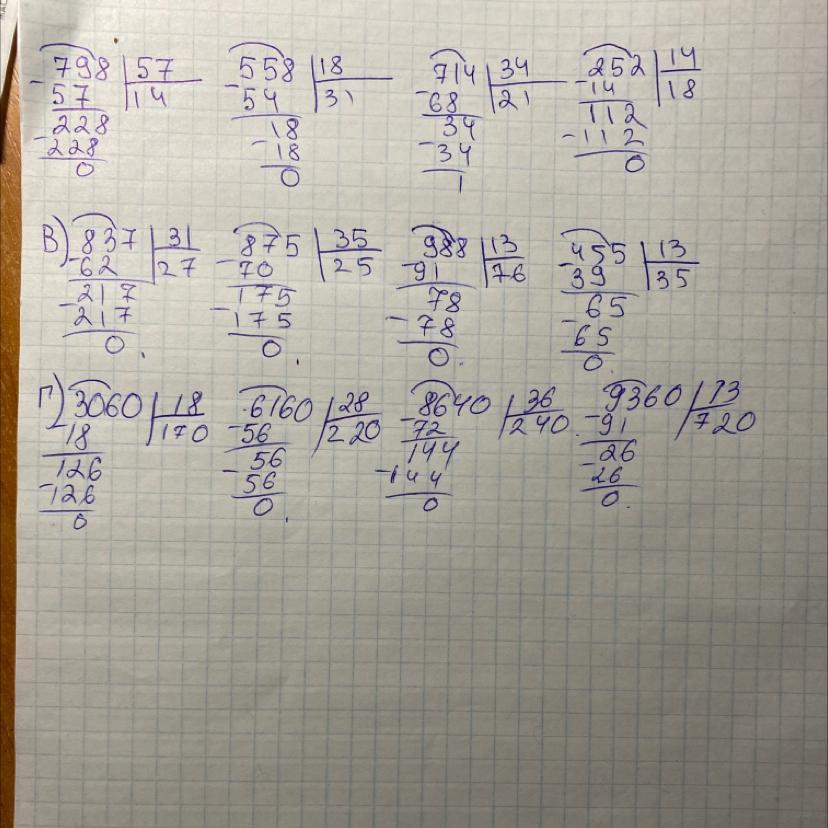 798 57 558 18 714 34 252 14
- 57 14 - 54 31 - 68 21 - 14 18
228 18 34 112
- 228 - 18 - 34 - 112
0 0 1 0
В) 837 31 875 35 988 13 455 13
- 62 27 - 70 25 - 91 76 - 39 35
217 175 78 65
- 217 - 175 - 78 - 65
0. 0. 0. 0.
Г) 3060 18 6160 28 8640 36 9360 13
- 18 170 - 56 220 - 72 240. - 91 720
126 56 144 - 26
- 126 - 56 - 144 26
0 0. 0 0.